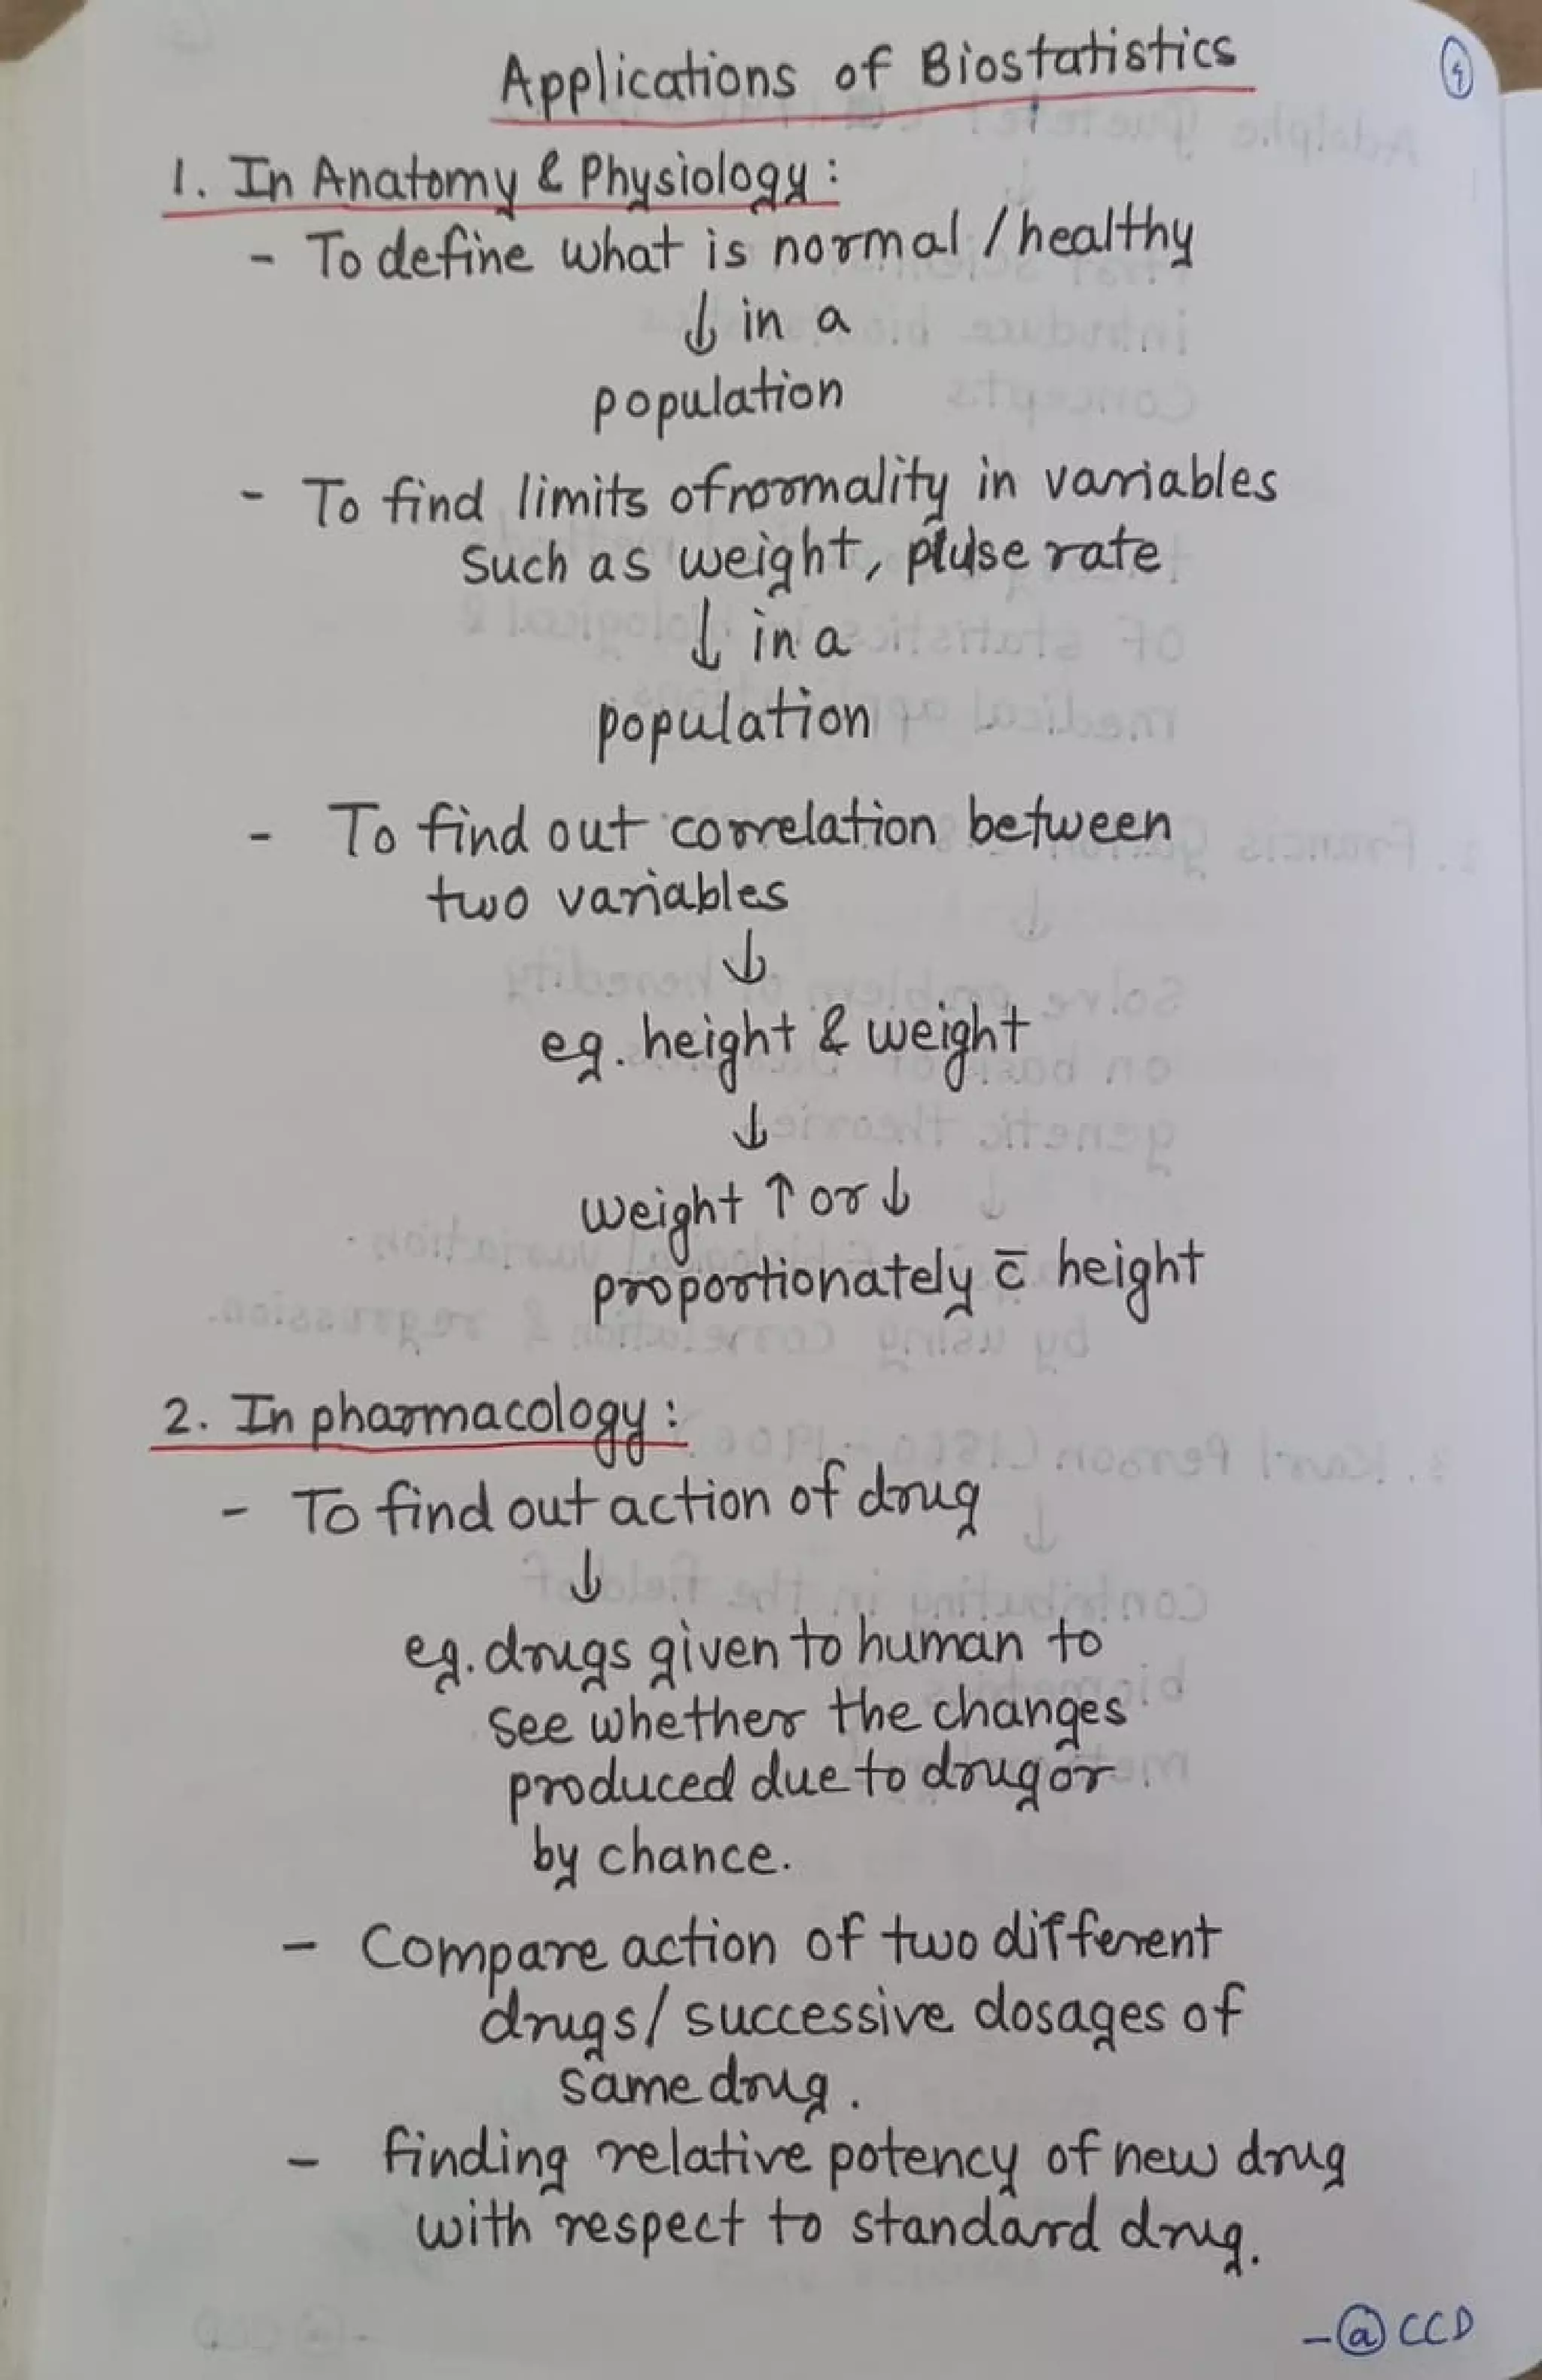 Applications of Biostatistics
1. In Anatomy & Physiology :
- To define what is normal / healthy
↓ in a
population
- To find limits of normality in variables
Such as weight, pluse rate
↓ in a
population
- To find out correlation between
two variables
↓
eg. height & weight
↓
weight ↑ or ↓
proportionately c̄ height
2. In pharmacology :
- To find out action of drug
↓
eg. drugs given to human to
see whether the changes
produced due to drug or
by chance.
- Compare action of two different
drugs / successive dosages of
same drug.
- finding relative potency of new drug
with respect to standard drug.
- @ CCD